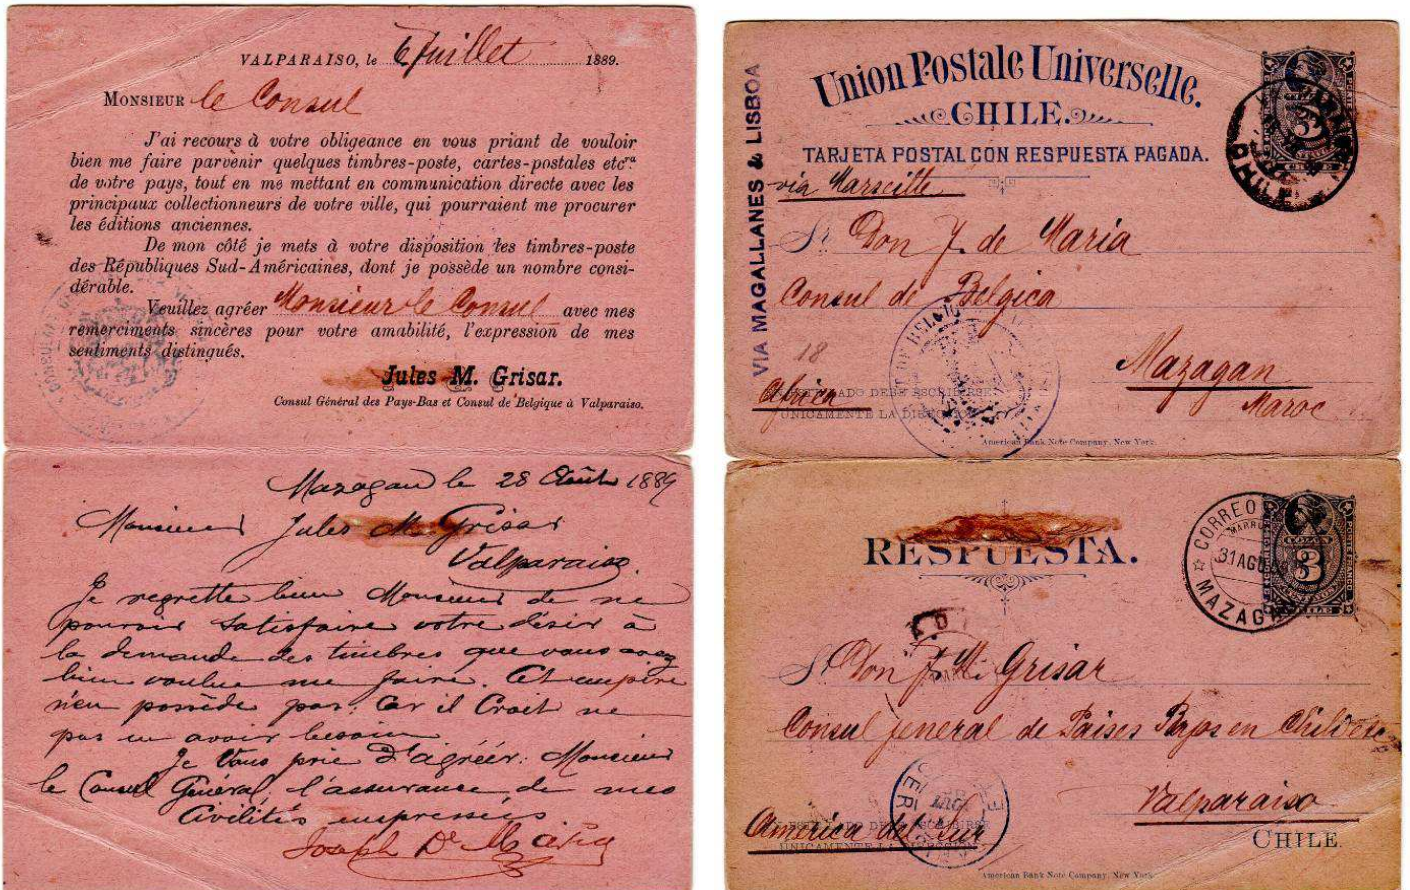 VALPARAISO, le 6 Juillet 1889.
MONSIEUR le Consul
J'ai recours à votre obligeance en vous priant de vouloir
bien me faire parvenir quelques timbres-poste, cartes-postales etc.ra
de votre pays, tout en me mettant en communication directe avec les
principaux collectionneurs de votre ville, qui pourraient me procurer
les éditions anciennes.
De mon côté je mets à votre disposition les timbres-poste
des Républiques Sud-Américaines, dont je possède un nombre consi-
dérable.
Veuillez agréer Monsieur le Consul avec mes
remerciments sincères pour votre amabilité, l'expression de mes
sentiments distingués.
Jules M. Grisar.
Consul Général des Pays-Bas et Consul de Belgique à Valparaiso.
Mazagan le 28 Août 1889
Monsieur Jules M. Grisar
Valparaiso
Je regrette bien Monsieur de ne
pouvoir satisfaire votre désir à
la demande des timbres que vous avez
bien voulu me faire. Cet empire
n'en possède pas. Car il Croit ne
pas en avoir besoin
Je Vous prie D'agréer. Monsieur
le Consul Général, l'assurance de mes
Civilités empressées
Joseph De Maria
Union Postale Universelle.
CHILE.
TARJETA POSTAL CON RESPUESTA PAGADA.
VIA MAGALLANES & LISBOA
via Marseille
3
CHILE
Sr. Don J. de Maria
Consul de Belgica
18
Mazagan
Africa
Maroc
ÚNICAMENTE LA
American Bank Note Company, New York.
RESPUESTA.
CORREO
31 AGO
MAZAG
COLON
3
Sr. Don J. M. Grisar
Consul jeneral de Paises Bajos en Chile
Valparaiso
America del Sur
CHILE.
ÚNICAMENTE LA
American Bank Note Company, New York.